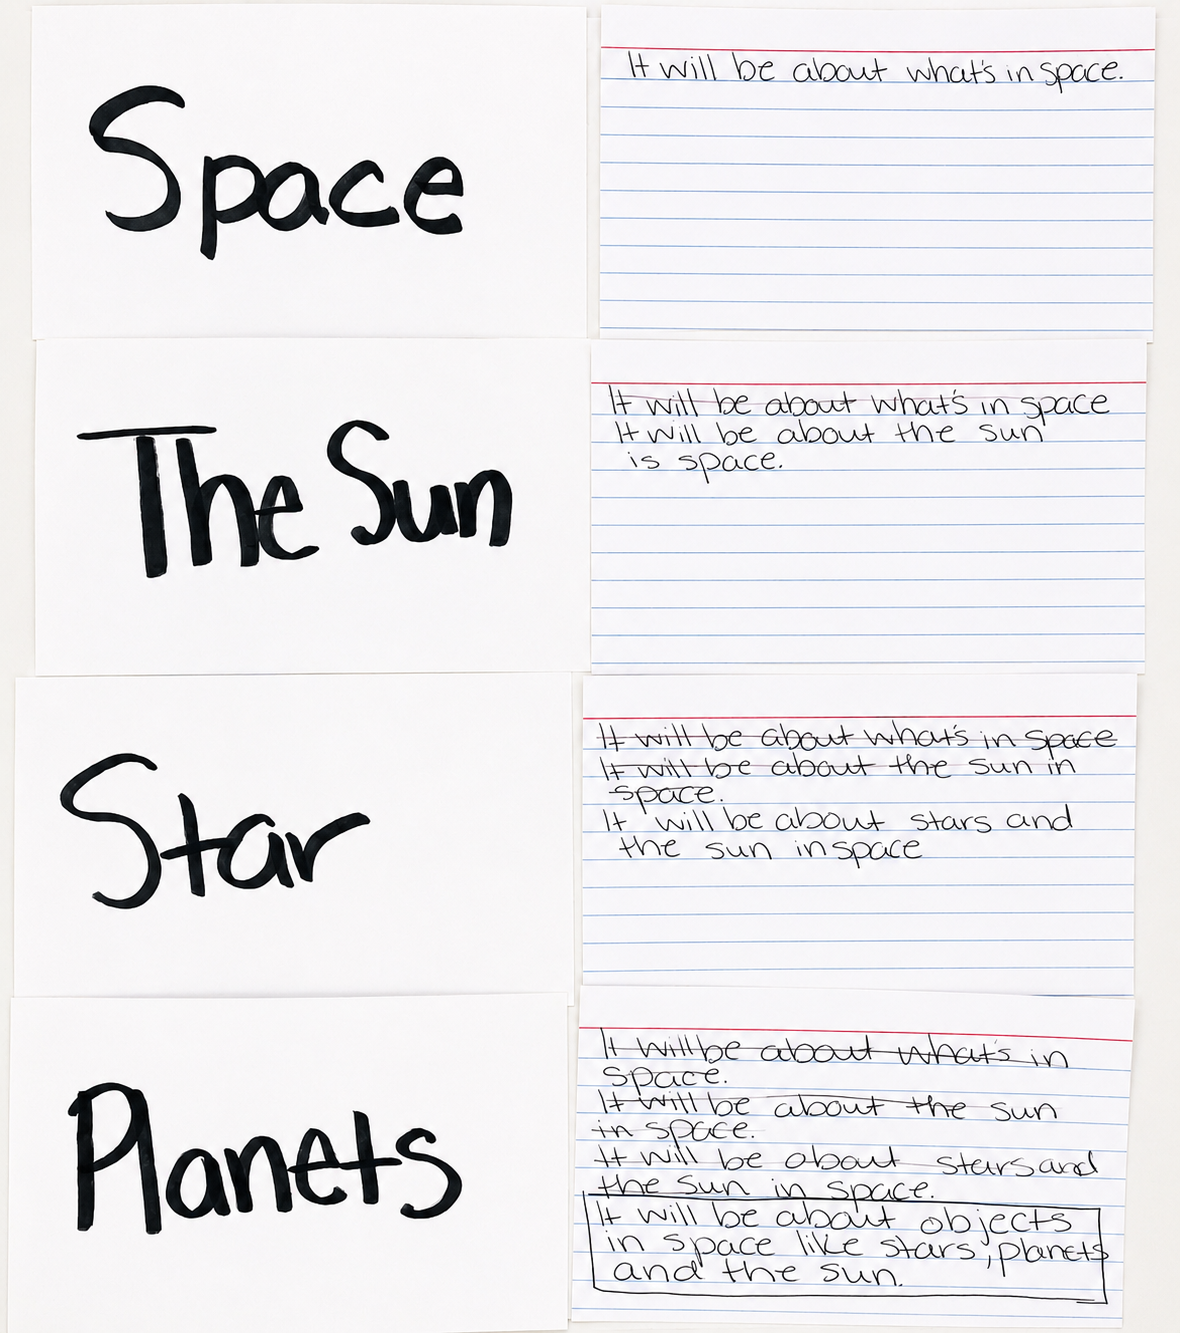 Space
It will be about what's in space.
The Sun
It will be about what's in space
It will be about the sun
is space.
Star
It will be about what's in space
It will be about the sun in
space.
It will be about stars and
the sun in space
Planets
It will be about what's in
space.
It will be about the sun
in space.
It will be about stars and
the sun in space.
It will be about objects
in space like stars, planets
and the sun.